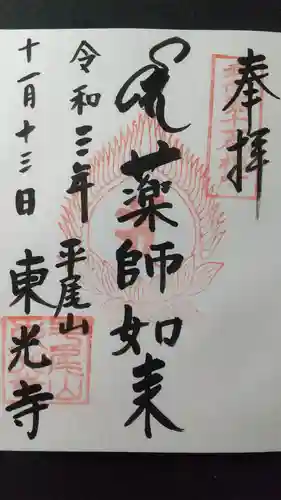 奉拝
薬師如来
令和三年
十一月十三日
平尾山
東光寺